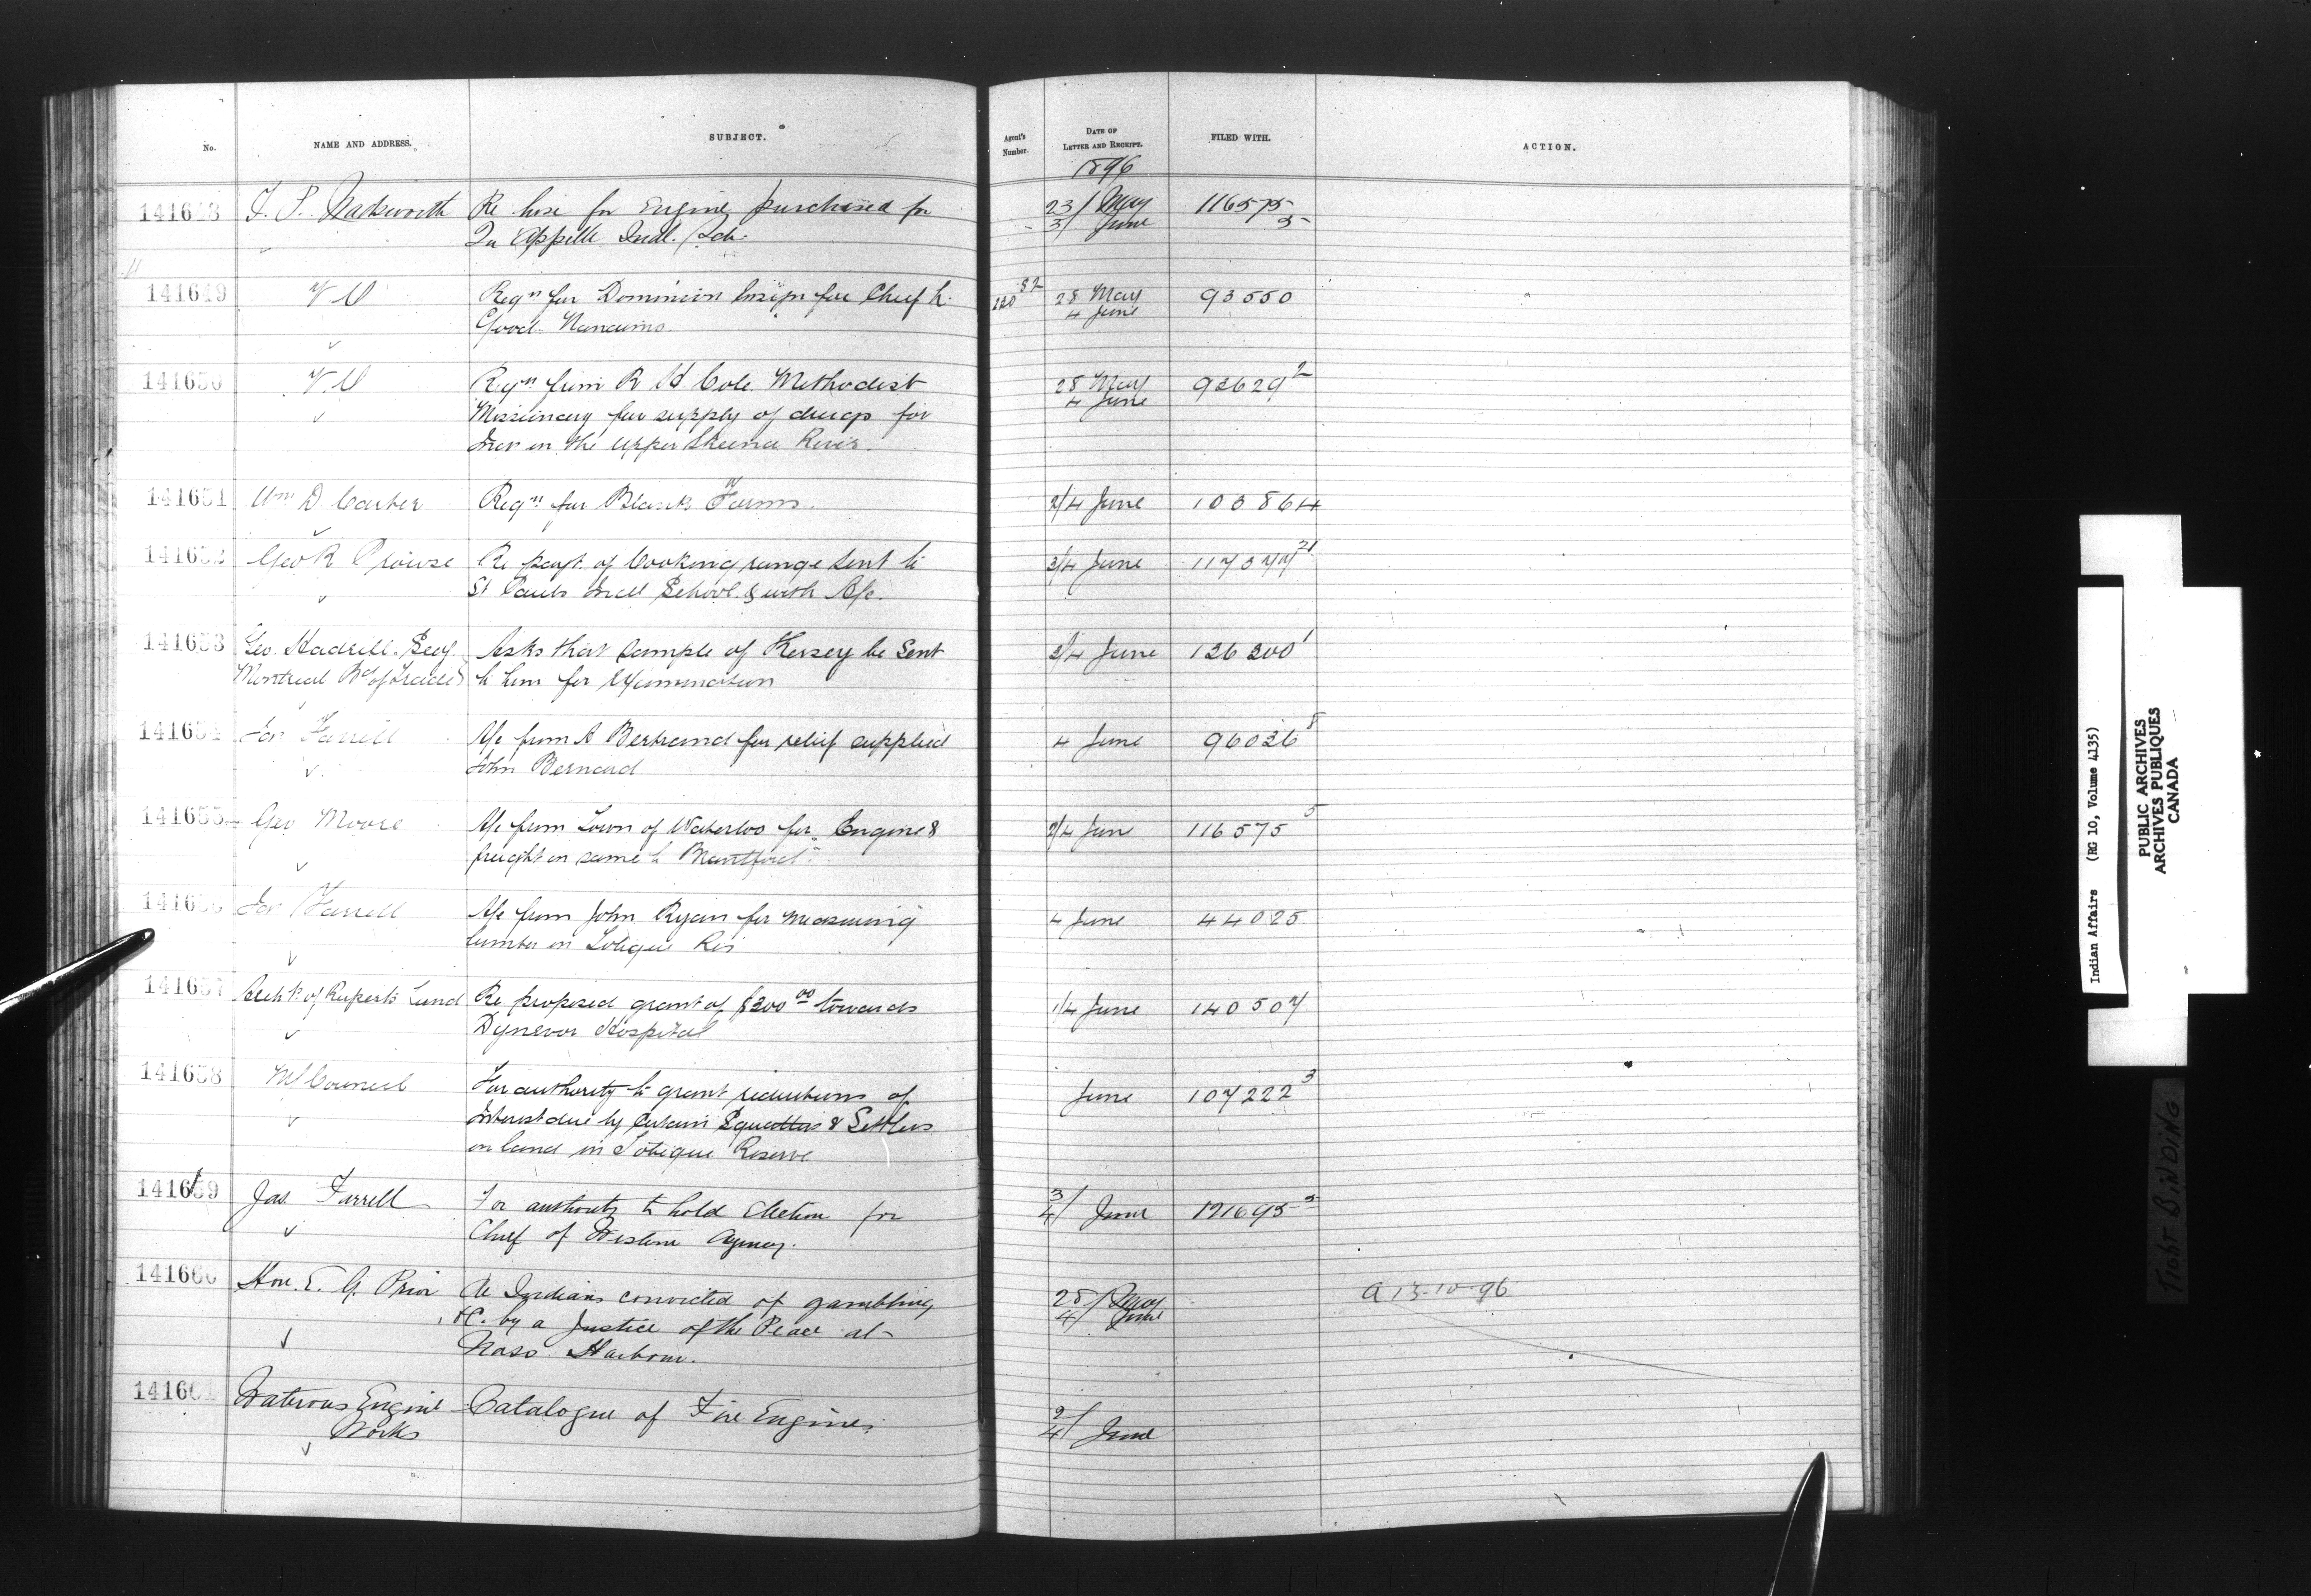 No.
NAME AND ADDRESS.
SUBJECT.
Agent's Number.
DATE OF LETTER AND RECEIPT.
FILED WITH.
ACTION.
1896
T. P. Wadsworth Re hose for Engine purchased for 23/ May 116575
Qu'Appelle Indl. Sch. 3/ June 5
141649 V. O Reqn for Dominion Ensign for Chief L. 28 May 93550
Good. Nanaimo. 4 June
141650 V. O Reqn from R H Cole Methodist 28 May 93629 2
Missionary for supply of drugs for 4 June
Inds on the Upper Skeena River.
141651 Wm D. Carter Reqn for Blank Forms. 2/4 June 103864
141652 Geo R Prowse Re payt. of Cooking range sent to 3/4 June 21
St Pauls Indl School & with A/c.
141653 Geo. Hadrill. Secy. Asks that sample of Kersey be sent 3/4 June 126200 1
Montreal Bd of Trade to him for Examination
141654 Jas Farrell A/c from A Bertrand for relief supplied 4 June 96026 8
John Bernard
141655 Geo Moore A/c from Town of Waterloo for Engine & 2/4 June 116575 5
freight on same to Brantford.
141656 Jas Farrell A/c from John Ryan for measuring 4 June 44025
lumber on Tobique Res
141657 Archbp of Ruperts Land Re proposed grant of $200 00 towards 1/4 June 140507
Dynevor Hospital
141658 M/ Council For authority to grant reductions of June 107222 3
Interest due by certain Squatters & Settlers
on land in Tobique Reserve
141659 Jas Farrell For authority to hold Election for 3/4 June 121695
Chief of Western Agency.
141660 Hon. E. G. Prior Re Indians convicted of gambling 28/ May A 13-10-96
&c. by a Justice of the Peace at 4/ June
Nass Harbour.
141661 Waterous Engine Catalogue of Fire Engines. 2/4 June
Works
Indian Affairs (RG 10, Volume 4135)
PUBLIC ARCHIVES
ARCHIVES PUBLIQUES
CANADA
TIGHT BINDING